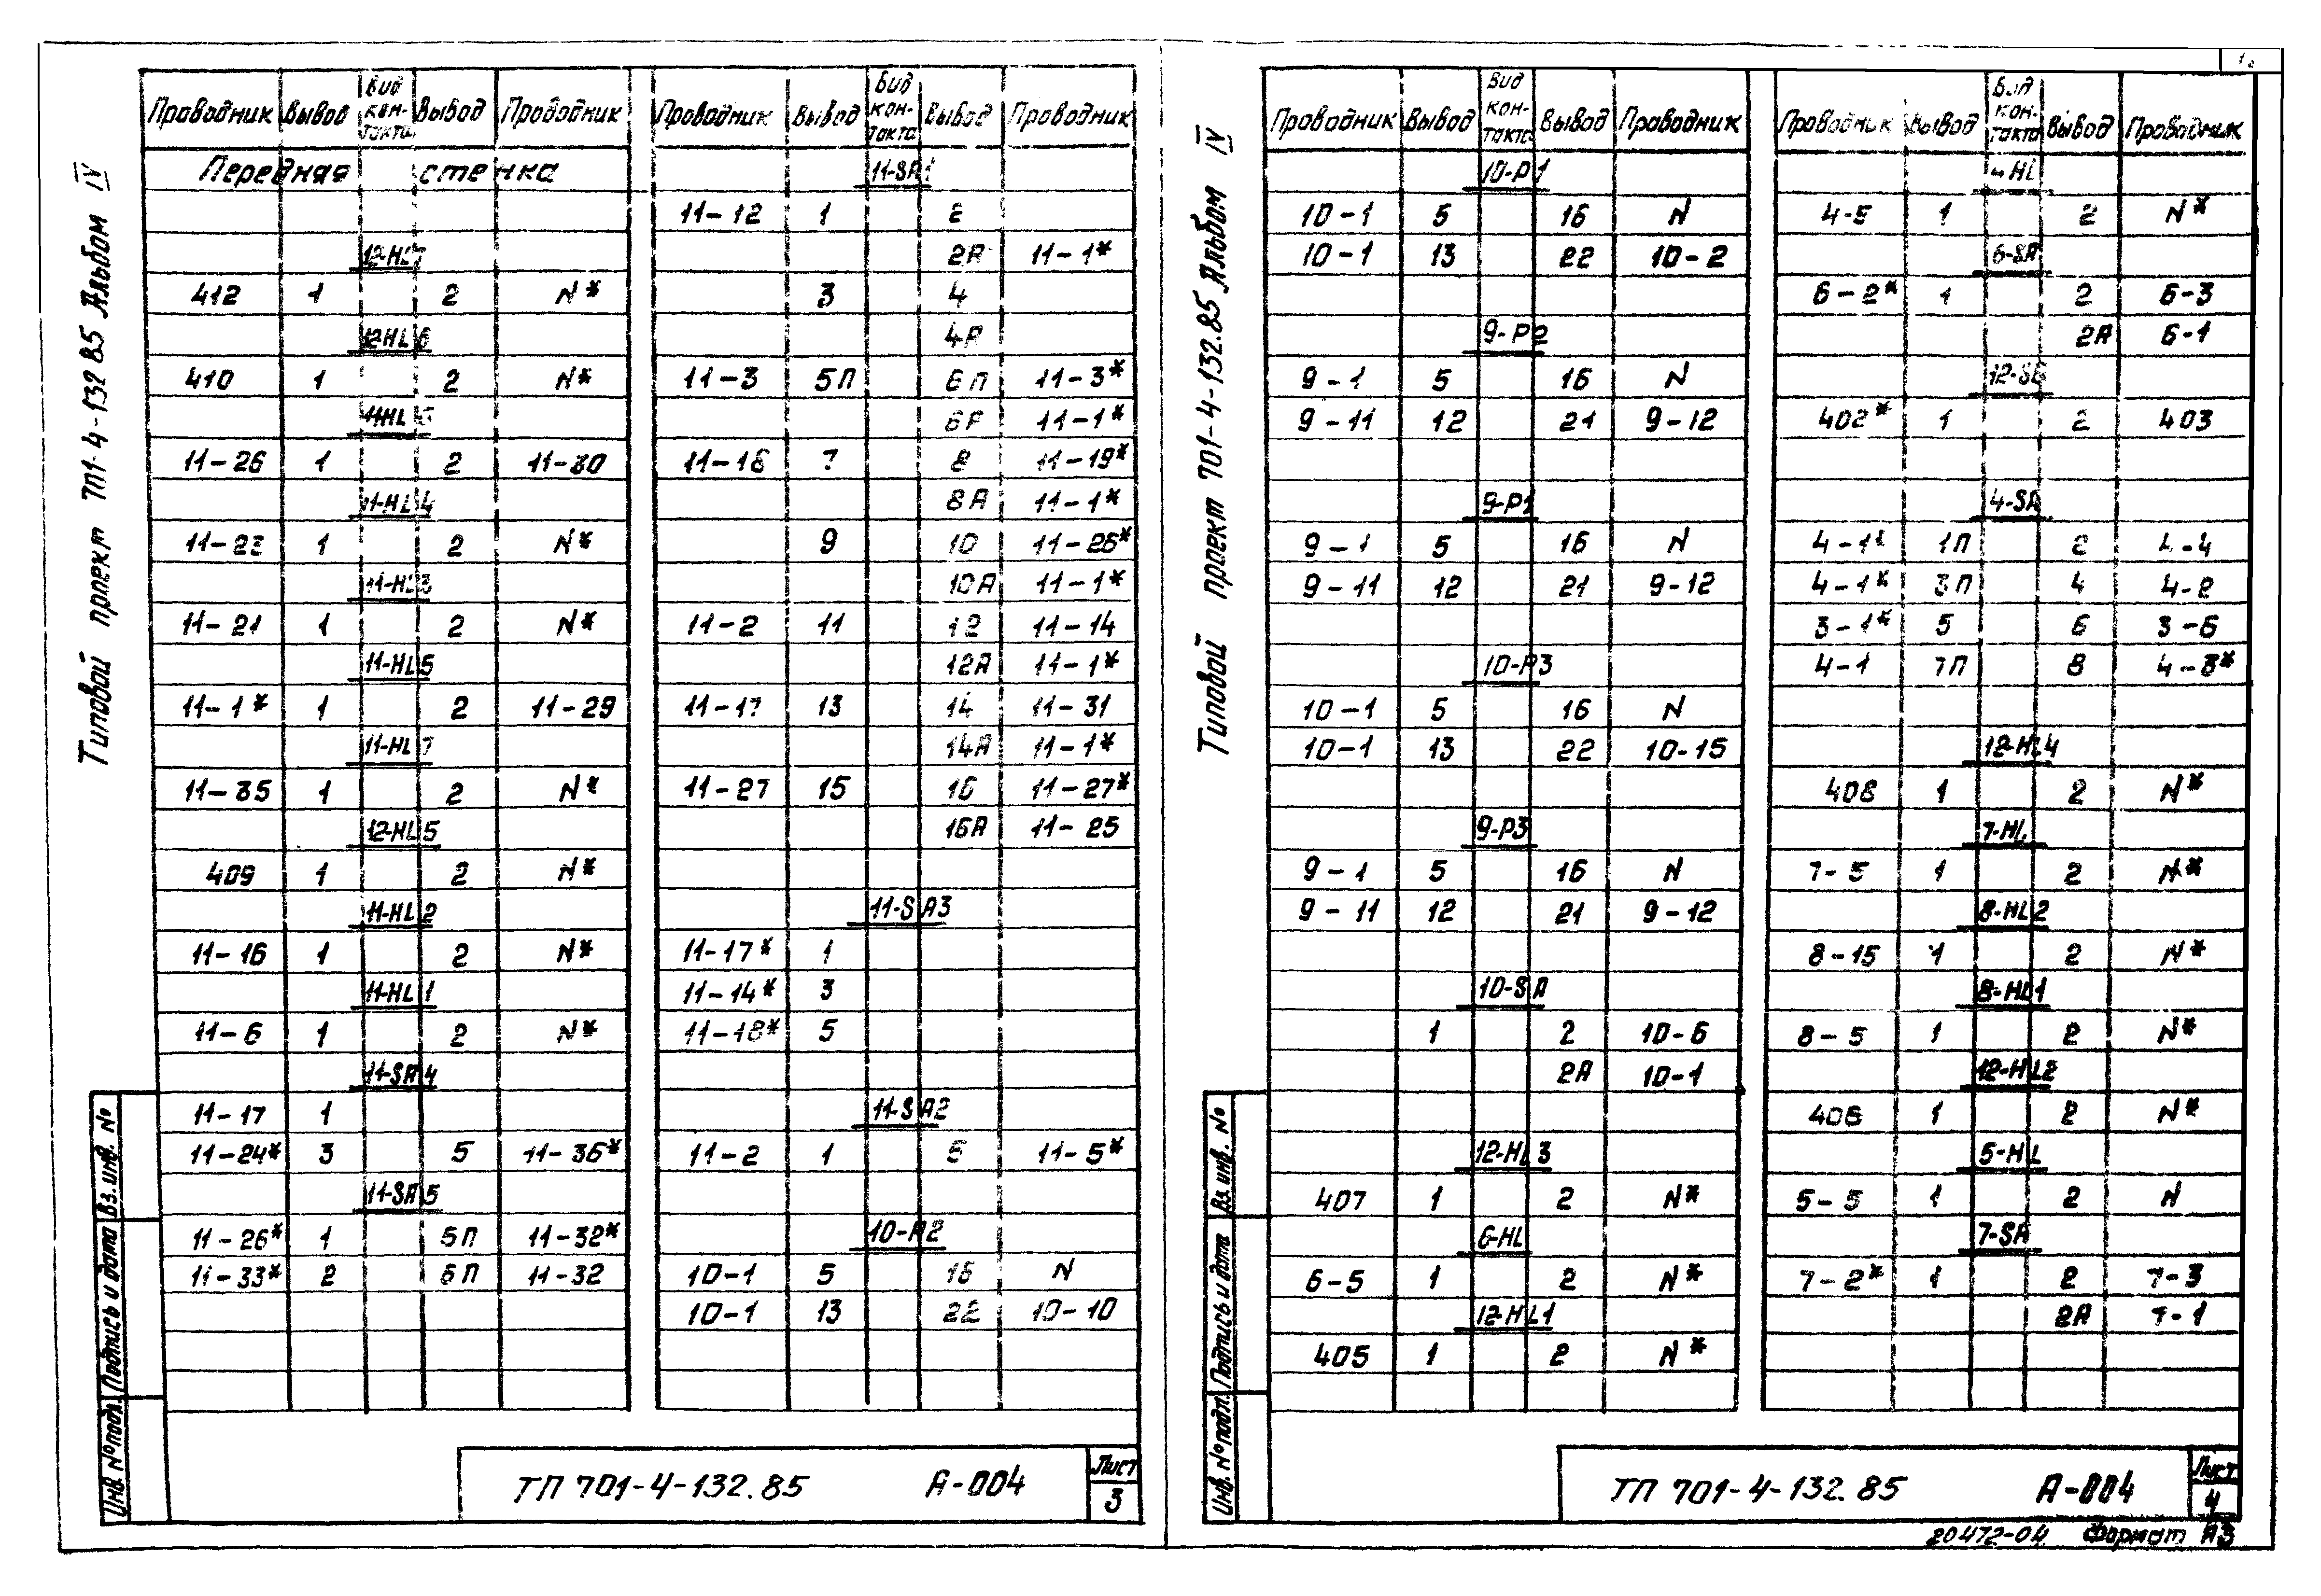 Типовой проект 701-4-132.85 Альбом IV
Проводник Вывод Вид контакта Вывод Проводник
Передняя стенка
12-HL7
412 1 2 N*
12HL6
410 1 2 N*
11HL
11-26 1 2 11-30
11-HL4
11-23 1 2 N*
11-HL3
11-21 1 2 N*
11-HL5
11-1* 1 2 11-29
11-HL7
11-35 1 2 N*
12-HL5
409 1 2 N*
11-HL2
11-16 1 2 N*
11-HL1
11-6 1 2 N*
11-SA4
11-17 1
11-24* 3 5 11-36*
11-SA5
11-26* 1 5П 11-32*
11-33* 2 6П 11-32
Проводник Вывод Вид кон-такта Вывод Проводник
11-SA1
11-12 1 2
2А 11-1*
3 4
4А
11-3 5П 6П 11-3*
6А 11-1*
11-18 7 8 11-19*
8А 11-1*
9 10 11-25*
10А 11-1*
11-2 11 12 11-14
12А 11-1*
11-17 13 14 11-31
14А 11-1*
11-27 15 16 11-27*
16А 11-25
11-SA3
11-17* 1
11-14* 3
11-18* 5
11-SA2
11-2 1 5 11-5*
10-P2
10-1 5 16 N
10-1 13 22 10-10
Вз. инв. №
Подпись и дата
Инв. № подл.
ТП 701-4-132.85 А-004
Лист
3
Типовой проект 701-4-132.85 Альбом IV
Проводник Вывод Вид кон-такта Вывод Проводник
10-P1
10-1 5 16 N
10-1 13 22 10-2
9-P2
9-1 5 16 N
9-11 12 21 9-12
9-P1
9-1 5 16 N
9-11 12 21 9-12
10-P3
10-1 5 16 N
10-1 13 22 10-15
9-P3
9-1 5 16 N
9-11 12 21 9-12
10-SA
1 2 10-6
2А 10-1
12-HL3
407 1 2 N*
6-HL
6-5 1 2 N*
12-HL1
405 1 2 N*
Проводник Вывод Вид кон-такта Вывод Проводник
4-HL
4-5 1 2 N*
6-SA
6-2* 1 2 6-3
2А 6-1
12-SB
402* 1 2 403
4-SA
4-1* 1П 2 4-4
4-1* 3П 4 4-2
3-1* 5 6 3-6
4-1 7П 8 4-3*
12-HL4
408 1 2 N*
7-HL
7-5 1 2 N*
8-HL2
8-15 1 2 N*
8-HL1
8-5 1 2 N*
12-HL2
406 1 2 N*
5-HL
5-5 1 2 N
7-SA
7-2* 1 2 7-3
2А 7-1
Вз. инв. №
Подпись и дата
Инв. № подл.
ТП 701-4-132.85 А-004
Лист
4
20472-04 Формат А3